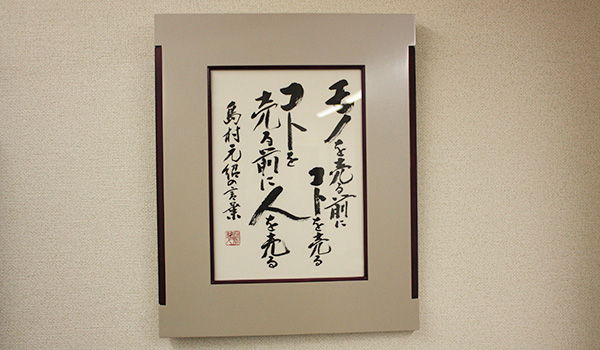 モノを売る前に
コトを売る
コトを
売る前に人を売る
島村元紹の言葉